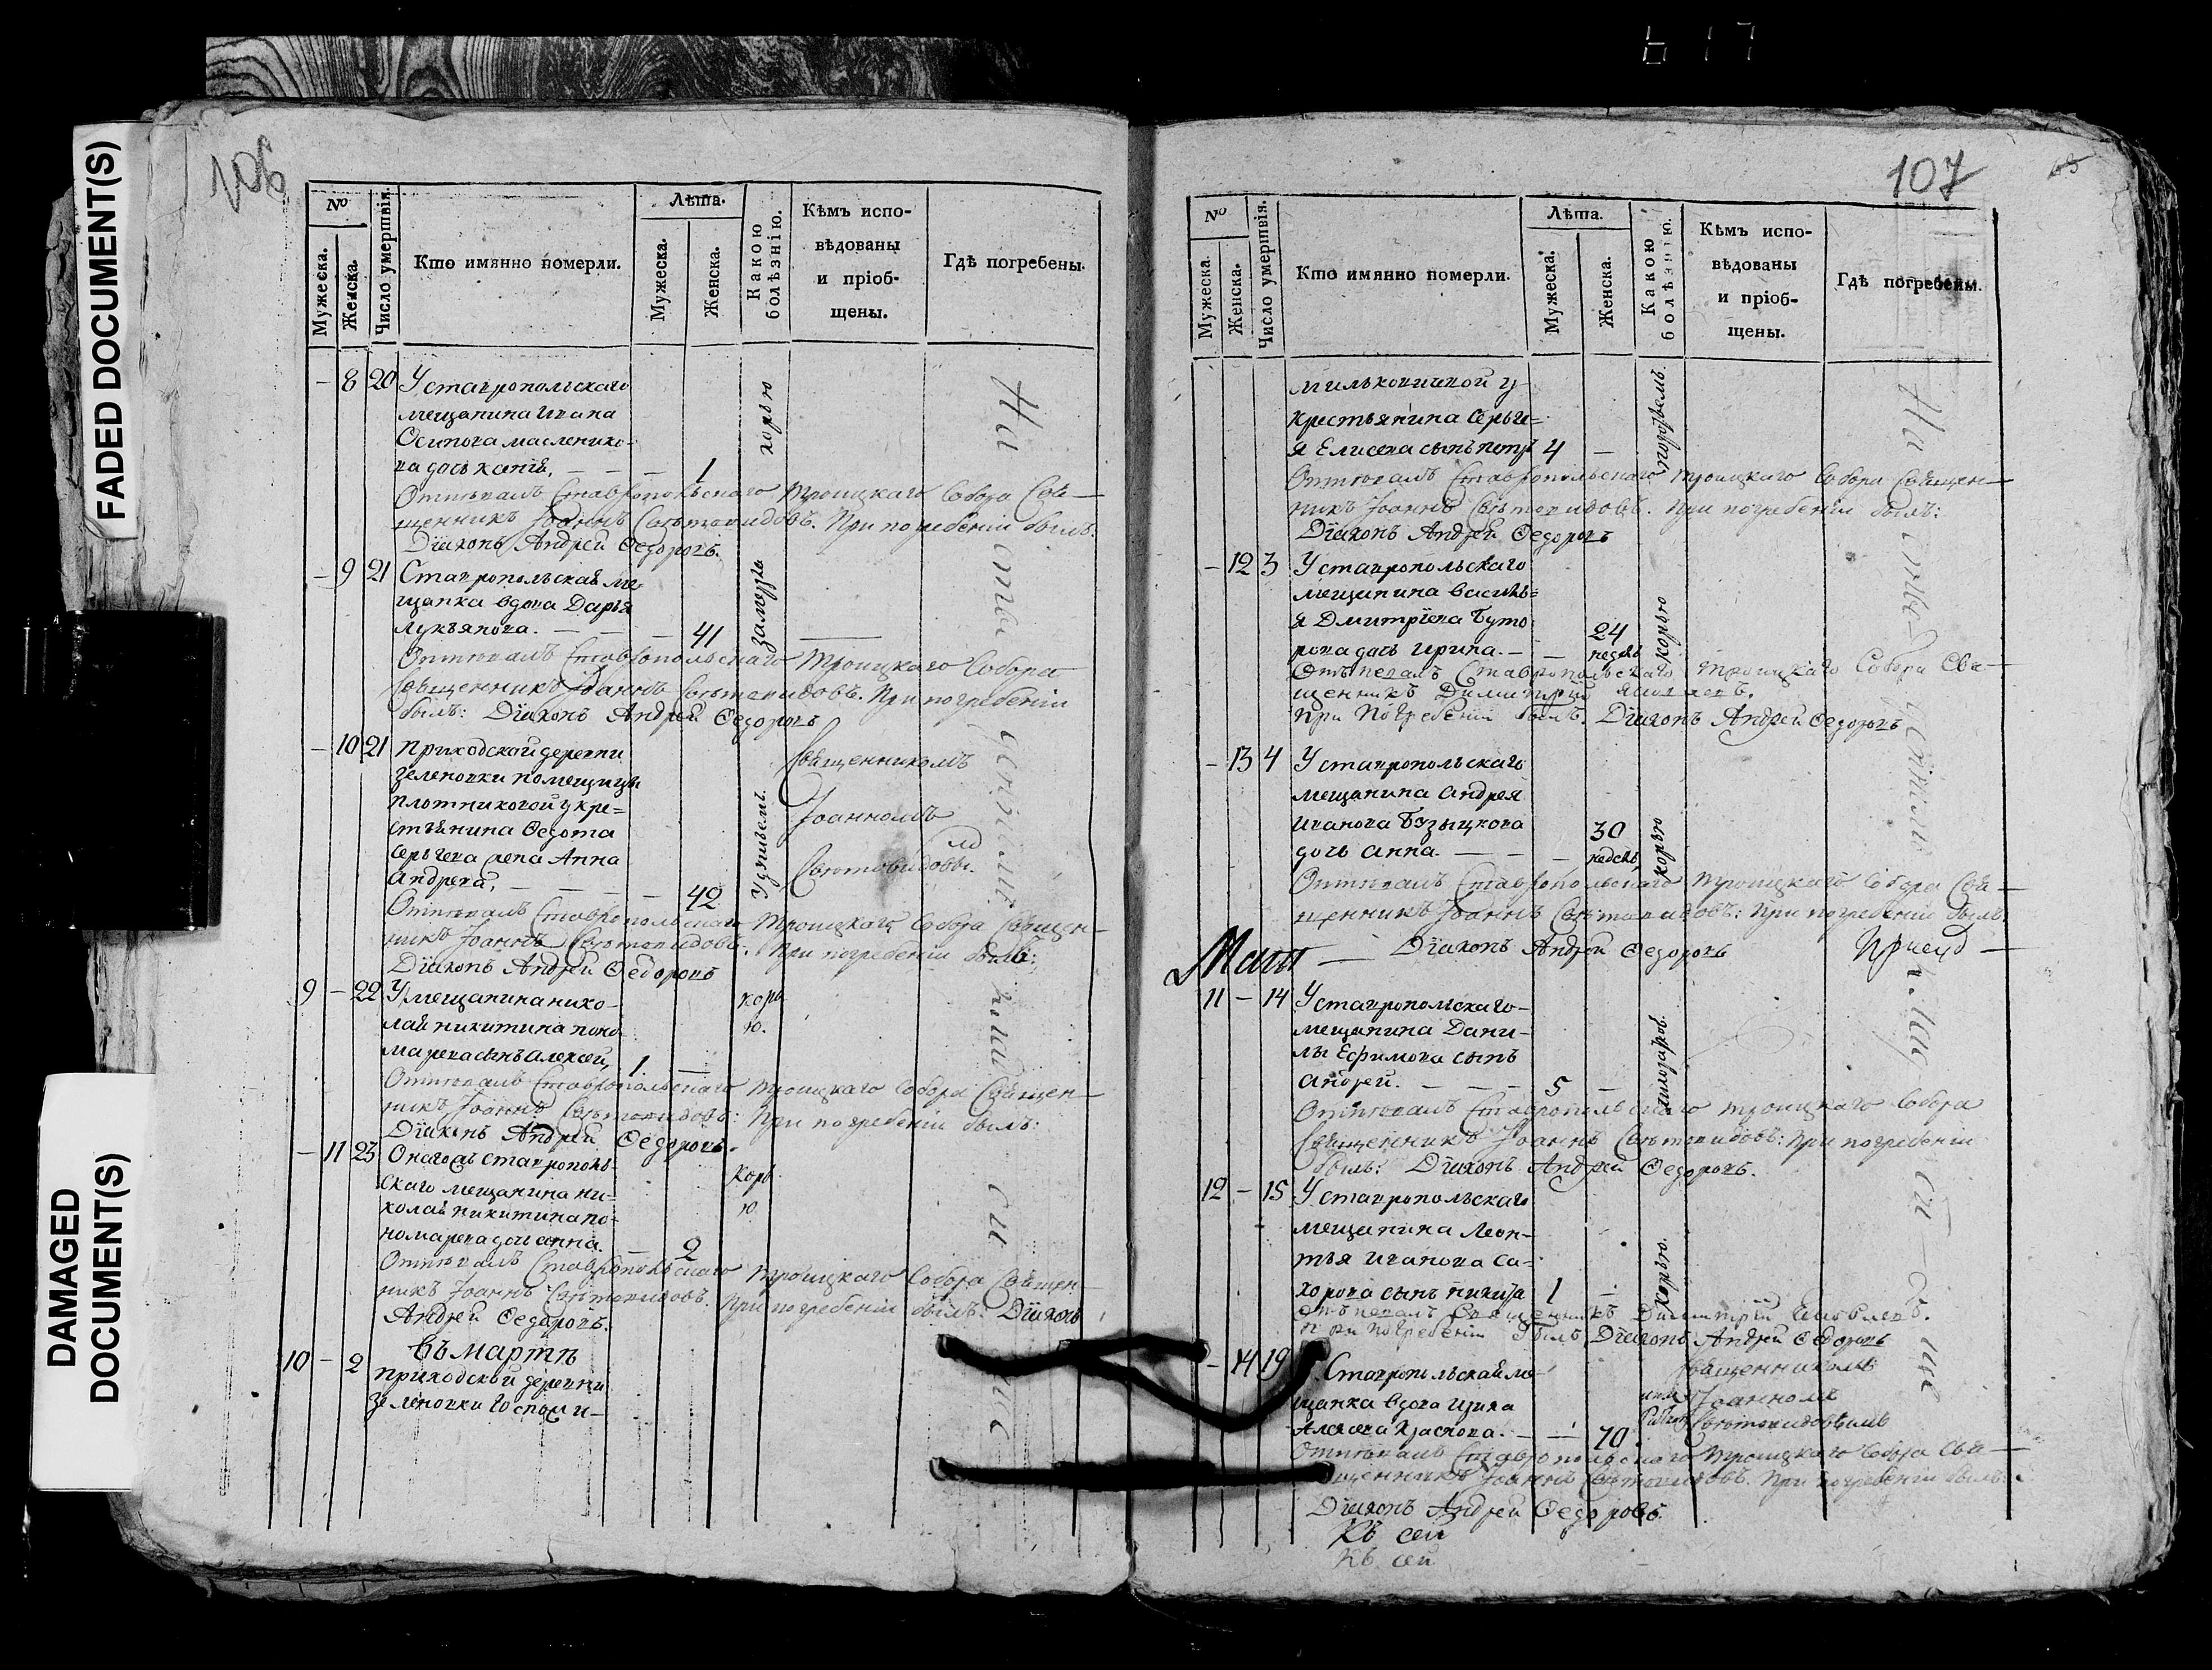 FADED DOCUMENT(S)
DAMAGED
DOCUMENT(S)
106
№
Мужеска.
Женска.
Число умертвія.
Кто имянно померли.
Лѣта.
Мужеска.
Женска.
Какою
болѣзнію.
Кѣмъ испо-
вѣдованы
и пріоб-
щены.
Гдѣ погребены.
- 8 20 У ставропольскаго
мещанина Ивана
Осипова масленико-
ва дочь
1
корью
Отпѣвалъ Ставропольскаго Троицкаго Собора Свя-
щенникъ Іоаннъ Свѣтовидовъ. При погребеніи былъ:
Діаконъ Андрей Федоровъ.
- 9 21 Ставропольская ме
щанка вдова Дарья
лукьянова. - - - 41
Отпѣвалъ Ставропольскаго Троицкаго Собора
Священникъ Іоаннъ Свѣтовидовъ. При погребеніи
былъ: Діаконъ Андрей Федоровъ
- 10 21 приходской деревни
зеленовки помещицы
плотниковой у кре-
стьянина Федота
Сергеева жена Анна
Андрева, - - - - 42
Священникомъ
Іоанномъ
Свѣтовидовымъ
Отпѣвалъ Ставропольскаго Троицкаго Собора Священ-
никъ Іоаннъ Свѣтовидовъ. При погребеніи былъ:
Діаконъ Андрей Федоровъ
9 - 22 У мещанина нико-
лая никитина поно
марева сынъ алексей, 1 -
корь
ю.
Отпѣвалъ Ставропольскаго Троицкаго Собора Священ-
никъ Іоаннъ Свѣтовидовъ: При погребеніи былъ:
Діаконъ Андрей Федоровъ.
- 11 23 Онагожъ ставрополь-
скаго мещанина ни-
колая никитина по-
номарева дочь анна. - 2
корь
ю
Отпѣвалъ Ставропольскаго Троицкаго Собора Священ-
никъ Іоаннъ Свѣтовидовъ. При погребеніи былъ: Діаконъ
Андрей Федоровъ.
Въ мартѣ
10 - 2 приходской деревни
зеленовки госпожи
На
107
№
Мужеска.
Женска.
Число умертвія.
Кто имянно померли.
Лѣта.
Мужеска.
Женска.
Какою
болѣзнію.
Кѣмъ испо-
вѣдованы
и пріоб-
щены.
Гдѣ погребены.
мильковичевой у
крестьянина Серьге-
я Елисева сынъ петръ 4 -
Отпѣвалъ Ставропольскаго Троицкаго Собора Священ-
никъ Іоаннъ Свѣтовидовъ. При погребеніи былъ:
Діаконъ Андрей Федоровъ
- 12 3 У ставропольскаго
мещанина василь-
я Дмитріева Буто
рова дочь ирина. - - 24
недѣль
корью
Отъпевалъ Ставропольскаго Троицкаго Собора Свя-
щенникъ Димитрий
При погребеніи былъ. Діаконъ Андрей Федоровъ
- 13 4 У ставропольскаго
мещанина андрея
иванова Бузыцкова
дочь анна. - - - 30
недель
корью
Отпѣвалъ Ставропольскаго Троицкаго Собора Свя-
щенникъ Іоаннъ Свѣтовидовъ: При погребеніи былъ
Діаконъ Андрей Федоровъ
11 - 14 У ставропольскаго
мещанина Дани-
лы Ефимова сынъ
андрей. - - - 5 -
Отпѣвалъ Ставропольскаго Троицкаго Собора
Священникъ Іоаннъ Свѣтовидовъ: При погребеніи
былъ: Діаконъ Андрей Федоровъ.
12 - 15 У ставропольскаго
мещанина Леон-
тья иванова са-
харова сынъ никита 1 -
корью.
отъпевалъ Священникъ Димитрий
при погребении былъ Діаконъ Андрей Федоровъ
- 14 19 Ставропольская ме-
щанка вдова ирина
Алексева Краснова. - - 70
Священникомъ
Іоанномъ
Свѣтовидовымъ
Отпѣвалъ Ставропольскаго Троицкаго Собора Свя-
щенникъ Іоаннъ Свѣтовидовъ. При погребеніи былъ:
Діаконъ Андрей Федоровъ.
Къ сей
Къ сей
На